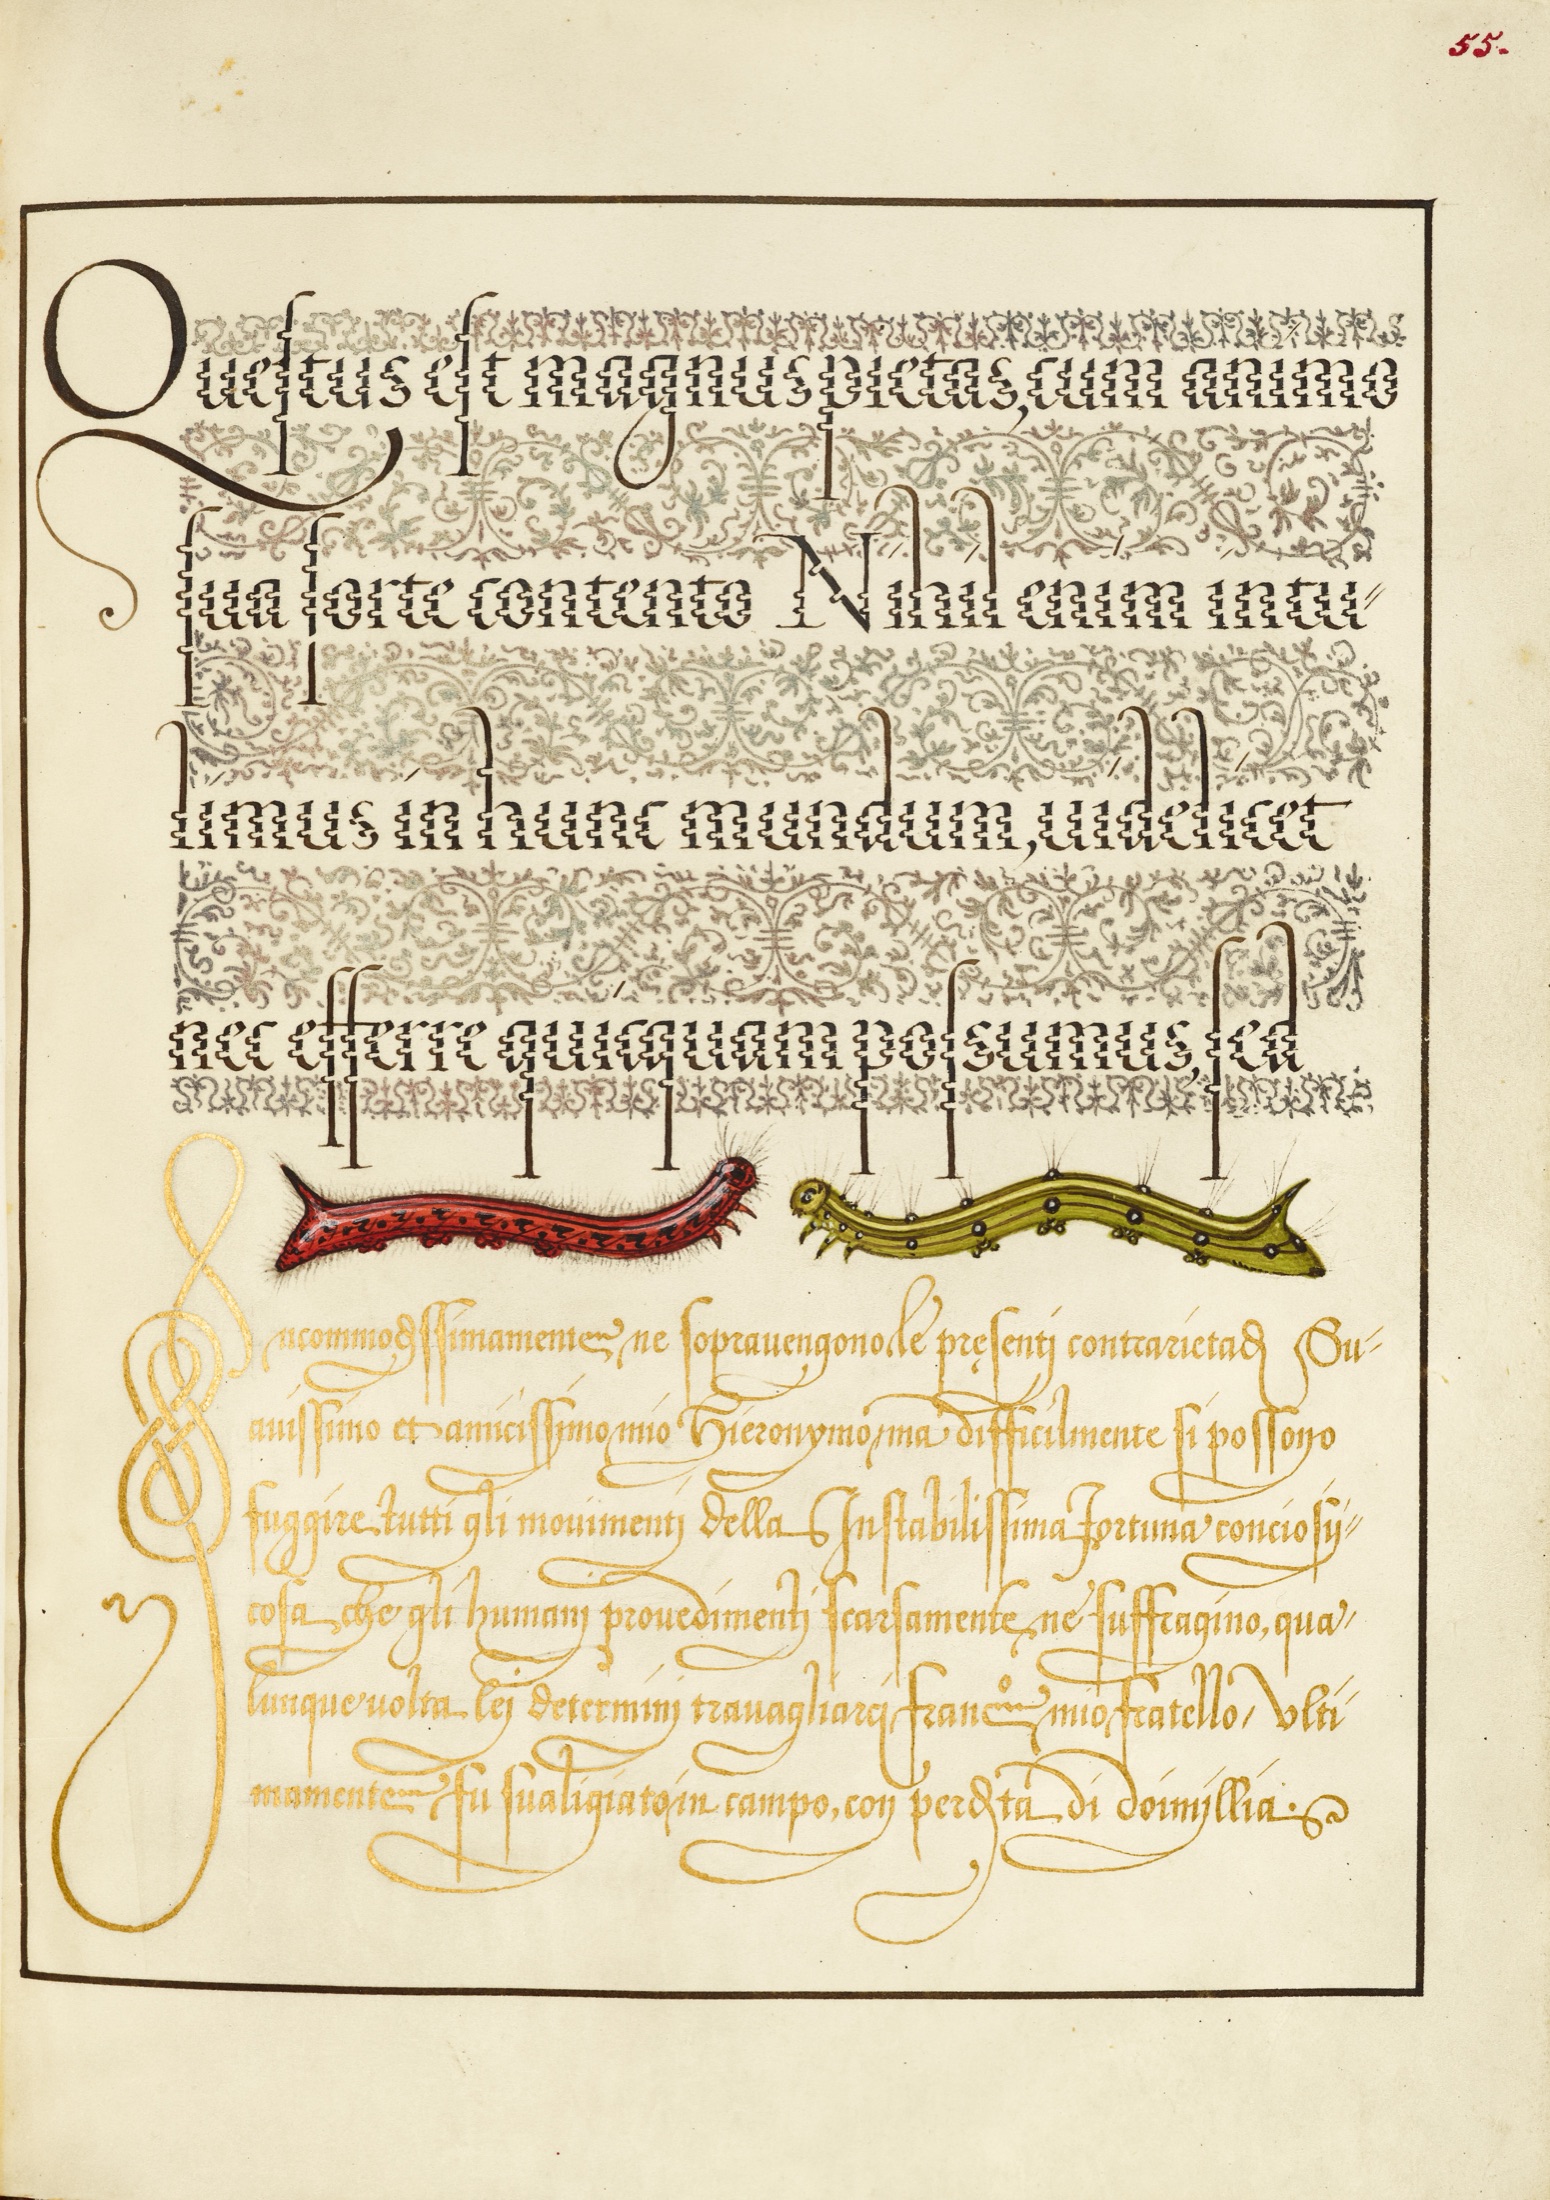 55.
Questus est magnus pietas, cum animo
sua sorte contento Nihil enim intu=
limus in hunc mundum, uidelicet
nec efferre quicquam possumus, sed
Incommodissimamente ne sopravengono le pręsenti contrarietadi Su=
auissimo et amicissimo mio Hieronymo, ma difficilmente si possono
fuggire tutti gli mouimenti della Instabilissima Fortuna conciosij=
cosa che gli humani prouedimenti scarsamente ne suffragino, qua=
lunque uolta lej determinj trauagliarcj franc.º mio fratello, Vlti=
mamente fu sualigiato in campo, con perdita di doimillia.